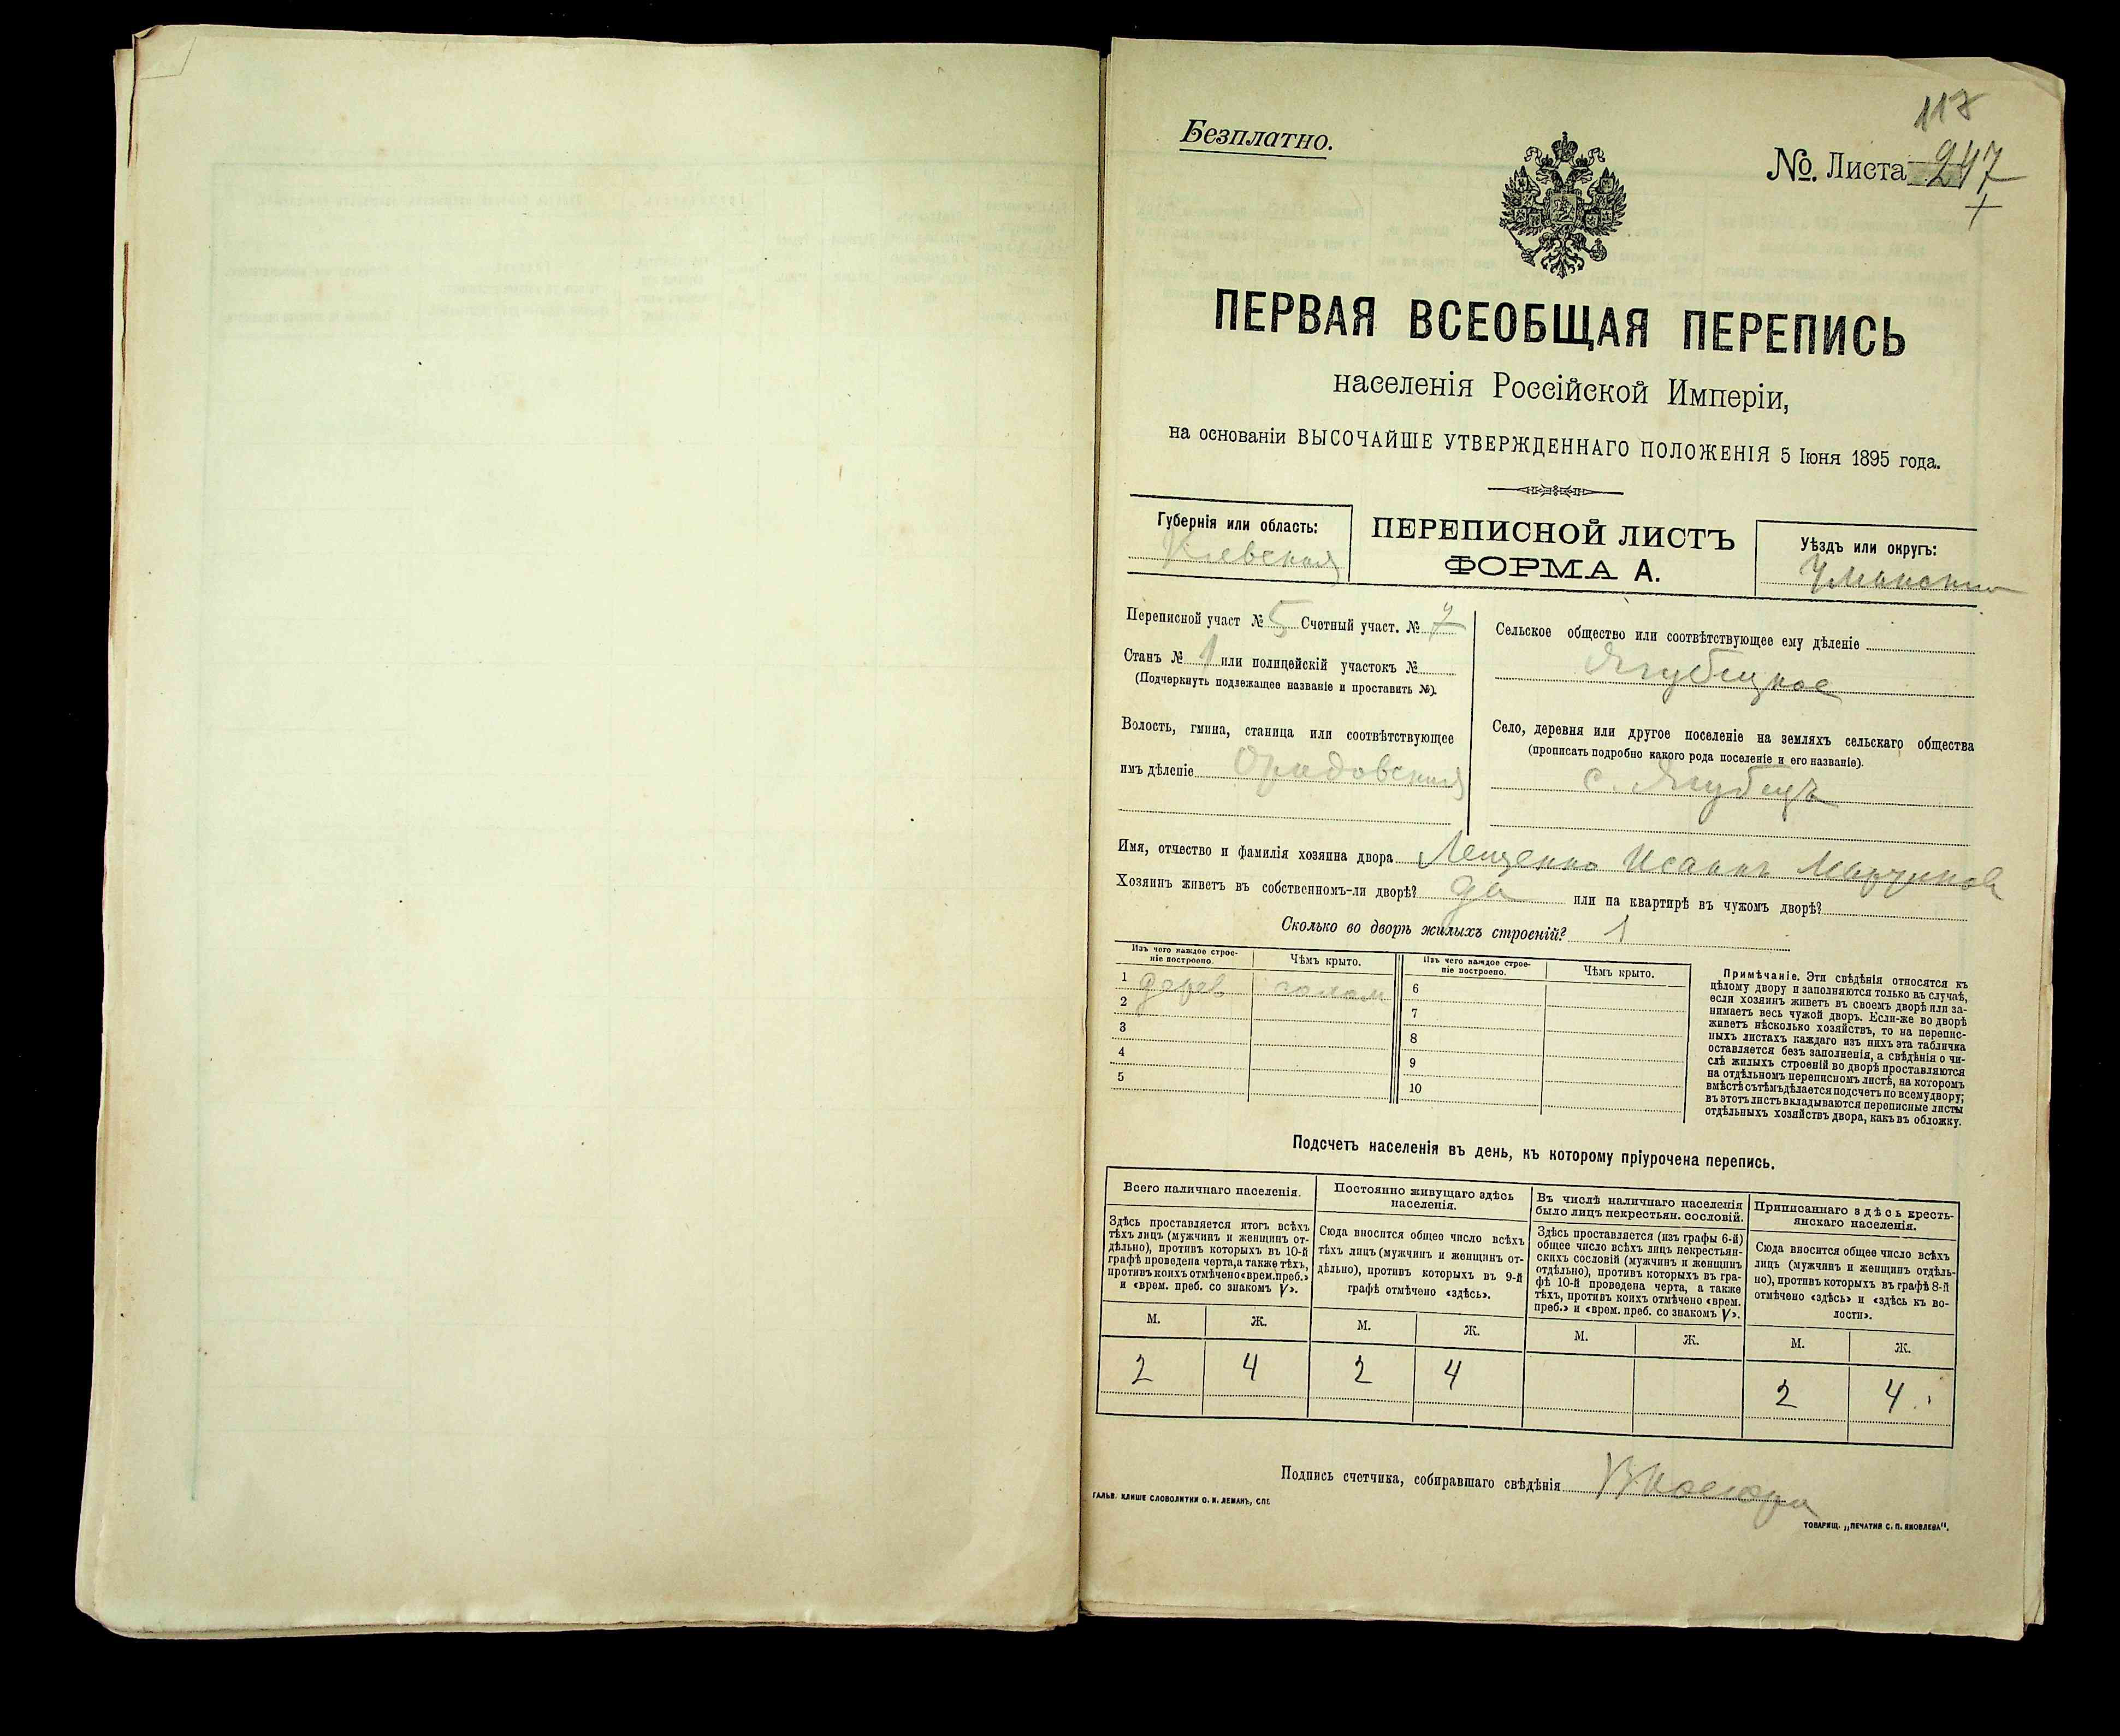 118
Безплатно.
№. Листа 247
ПЕРВАЯ ВСЕОБЩАЯ ПЕРЕПИСЬ
населенія Россійской Имперіи,
на основаніи ВЫСОЧАЙШЕ УТВЕРЖДЕННАГО ПОЛОЖЕНІЯ 5 Іюня 1895 года.
Губернія или область:
Кіевская
ПЕРЕПИСНОЙ ЛИСТЪ
ФОРМА А.
Уѣздъ или округъ:
Уманскій
Переписной участ № 5 Счетный участ. № 7
Станъ № 1 или полицейскій участокъ №
(Подчеркнуть подлежащее названіе и проставить №).
Волость, гмина, станица или соотвѣтствующее
имъ дѣленіе Орадовская
Сельское общество или соотвѣтствующее ему дѣленіе
Ягубецкое
Село, деревня или другое поселеніе на земляхъ сельскаго общества
(прописать подробно какого рода поселеніе и его названіе).
с. Ягубецъ
Имя, отчество и фамилія хозяина двора Лещенко Исакъ
Хозяинъ живетъ въ собственномъ-ли дворѣ? да или на квартирѣ въ чужомъ дворѣ?
Сколько во дворѣ жилыхъ строеній? 1
Изъ чего каждое строе-
ніе построено.
Чѣмъ крыто.
Изъ чего каждое строе-
ніе построено.
Чѣмъ крыто.
1 дерев солом 6
2 7
3 8
4 9
5 10
Примѣчаніе. Эти свѣдѣнія относятся къ
цѣлому двору и заполняются только въ случаѣ,
если хозяинъ живетъ въ своемъ дворѣ или за-
нимаетъ весь чужой дворъ. Если-же во дворѣ
живетъ нѣсколько хозяйствъ, то на перепис-
ныхъ листахъ каждаго изъ нихъ эта табличка
оставляется безъ заполненія, а свѣдѣнія о чи-
слѣ жилыхъ строеній во дворѣ проставляются
на отдѣльномъ переписномъ листѣ, на которомъ
вмѣстѣ съ тѣмъ дѣлается подсчетъ по всему двору;
въ этотъ листъ вкладываются переписные листы
отдѣльныхъ хозяйствъ двора, какъ въ обложку.
Подсчетъ населенія въ день, къ которому пріурочена перепись.
Всего наличнаго населенія.
Здѣсь проставляется итогъ всѣхъ
тѣхъ лицъ (мужчинъ и женщинъ от-
дѣльно), противъ которыхъ въ 10-й
графѣ проведена черта, а также тѣхъ,
противъ коихъ отмѣчено «врем. преб.»
и «врем. преб. со знакомъ V».
Постоянно живущаго здѣсь
населенія.
Сюда вносится общее число всѣхъ
тѣхъ лицъ (мужчинъ и женщинъ от-
дѣльно), противъ которыхъ въ 9-й
графѣ отмѣчено «здѣсь».
Въ числѣ наличнаго населенія
было лицъ некрестьян. сословій.
Здѣсь проставляется (изъ графы 6-й)
общее число всѣхъ лицъ некрестьян-
скихъ сословій (мужчинъ и женщинъ
отдѣльно), противъ которыхъ въ гра-
фѣ 10-й проведена черта, а также
тѣхъ, противъ коихъ отмѣчено «врем.
преб.» и «врем. преб. со знакомъ V».
Приписаннаго здѣсь кресть-
янскаго населенія.
Сюда вносится общее число всѣхъ
лицъ (мужчинъ и женщинъ отдѣль-
но), противъ которыхъ въ графѣ 8-й
отмѣчено «здѣсь» и «здѣсь къ во-
лости».
М. Ж. М. Ж. М. Ж. М. Ж.
2 4 2 4 2 4
Подпись счетчика, собиравшаго свѣдѣнія
ГАЛЬВ. КЛИШЕ СЛОВОЛИТНИ О. И. ЛЕМАНЪ, СПБ
ТОВАРИЩ. „ПЕЧАТНЯ С. П. ЯКОВЛЕВА“.